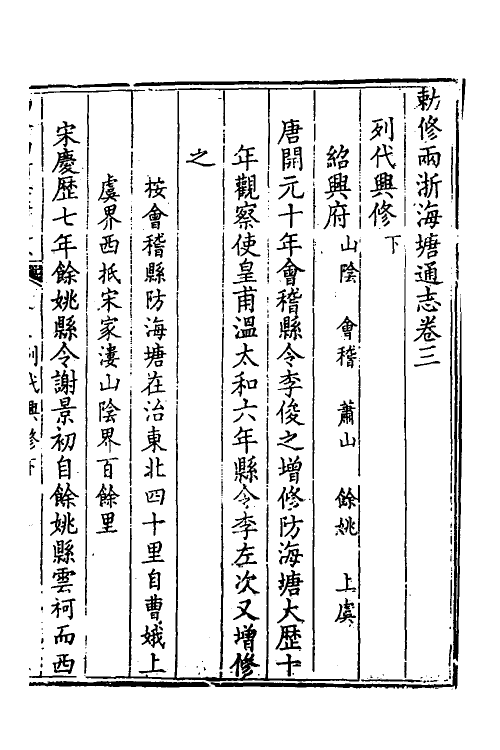 勅修兩浙海塘通志卷三
列代興修下
紹興府山陰 會稽 蕭山 餘姚 上虞
唐開元十年會稽縣令李俊之增修防海塘大歷十
年觀察使皇甫溫太和六年縣令李左次又增修
之
桉會稽縣防海塘在治東北四十里自曹娥上
虞界西抵宋家漊山陰界百餘里
宋慶歷七年餘姚縣令謝景初自餘姚縣雲柯而西
列代興修下